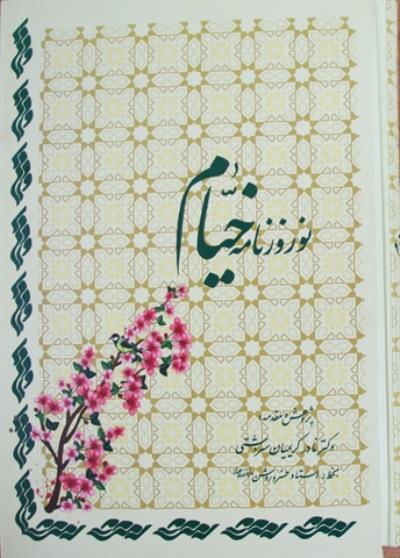 نوروزنامه خیّام
پژوهش و مقدمه:
دکتر نادر کریمیان سردشتی
بخط: استاد خسرو روشن